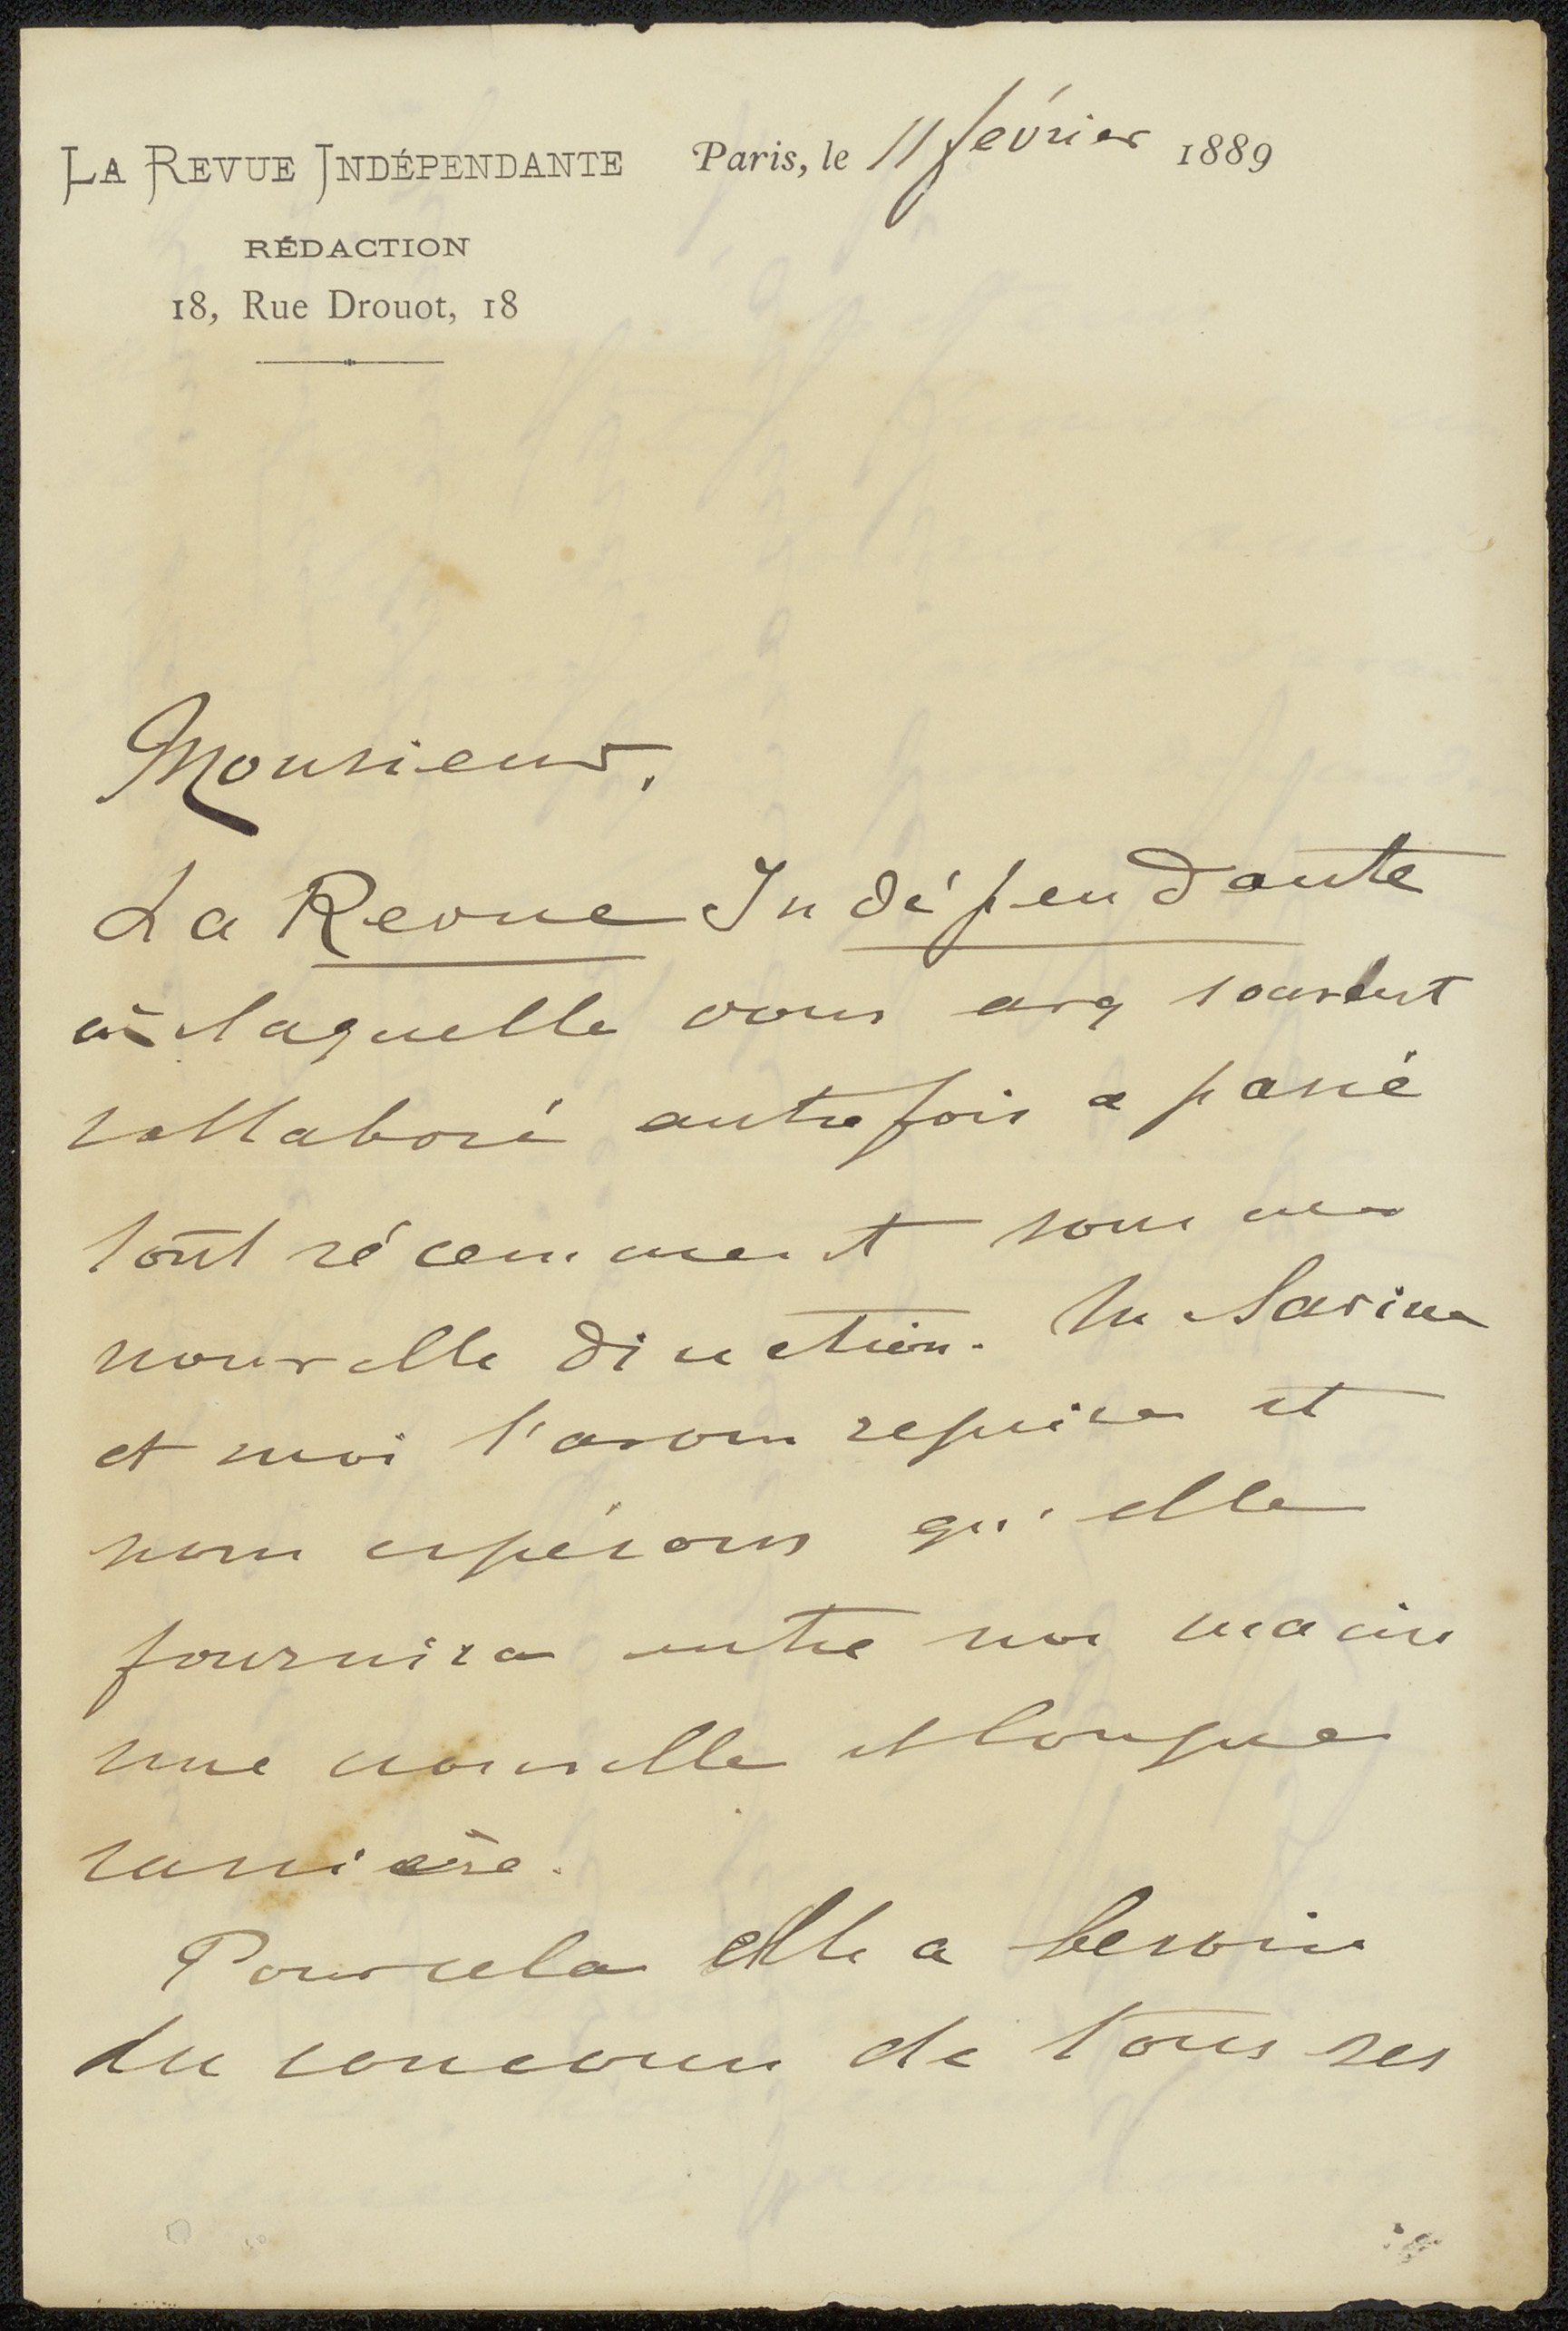 LA REVUE INDÉPENDANTE Paris, le 11 février 1889
RÉDACTION
18, Rue Drouot, 18
Monsieur,
La Revue Indépendante
à laquelle vous avez souvent
collaboré autrefois a passé
tout récemment sous une
nouvelle direction. M Savine
et moi l'avons reprise et
nous espérons qu'elle
fournira entre nos mains
une nouvelle et longue
carrière.
Pour cela elle a besoin
du concours de tous ses